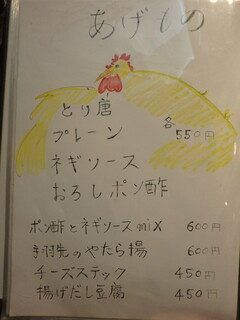 あげもの
とり唐
プレーン
各550円
ネギソース
おろしポン酢
ポン酢とネギソースmix 600円
手羽先のやたら揚 600円
チーズステック 450円
揚げだし豆腐 450円